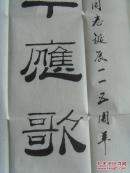 同志诞辰一一五周年
應歌